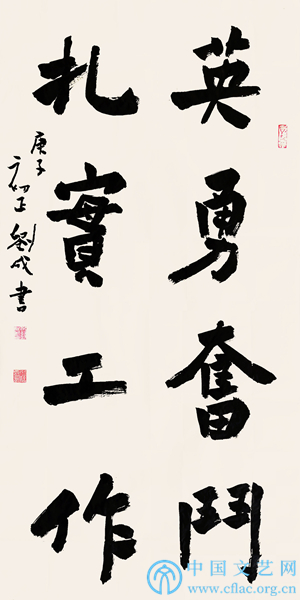 英勇奮鬥
扎實工作
庚子
劉成書
中国文艺网
www.cflac.org.cn